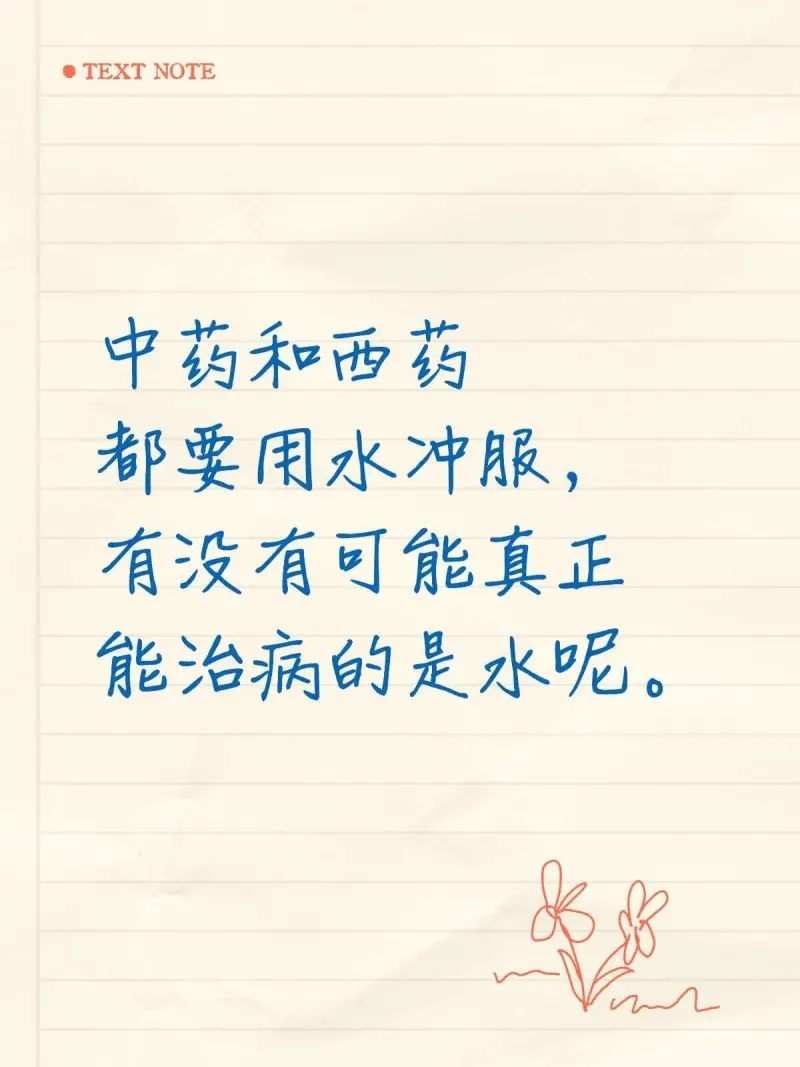 TEXT NOTE
中药和西药
都要用水冲服，
有没有可能真正
能治病的是水呢。